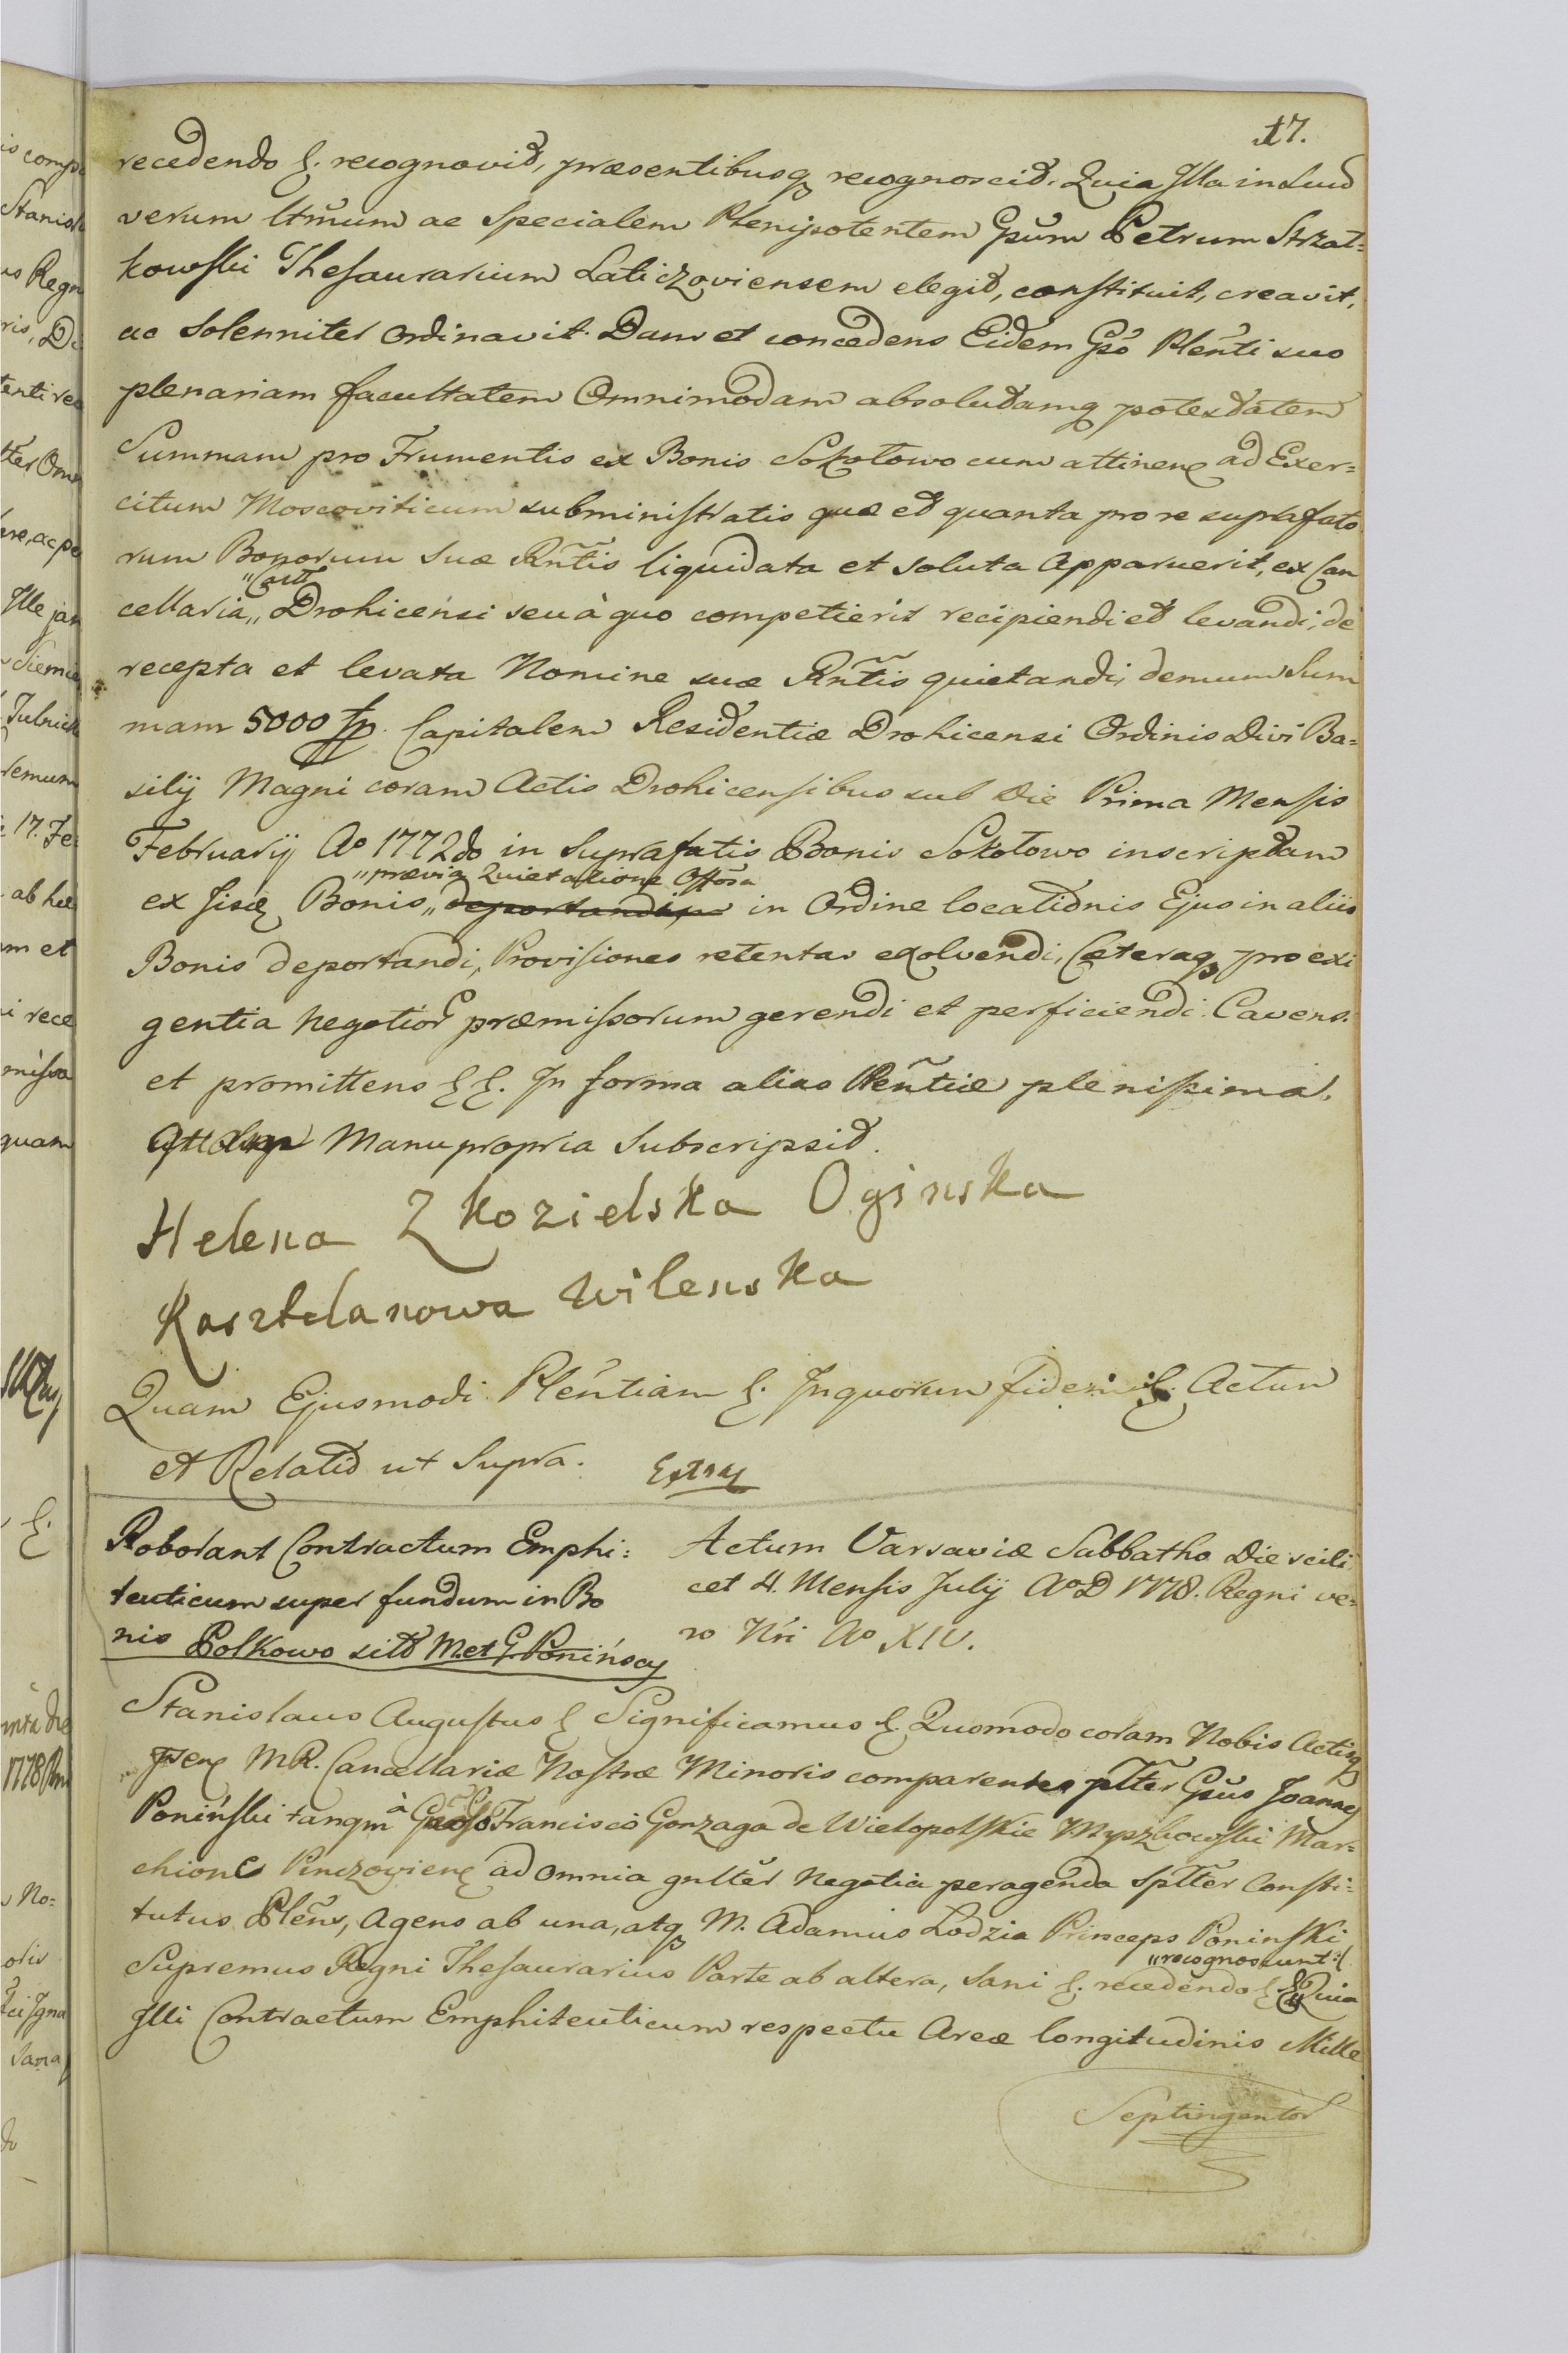 17.
recedendo &. recognovit, præsentibusq recognoscit. Quia Illa in Suũ
verum Ltmum ac Specialem Plenipotentem Gsũm Petrum Strzał=
kowski Thesaurarium Laticzoviensem elegit, constituit, creavit,
ac Solenniter Ordinavit. Dans et concedens Eidem Gsó Pleńti suo
plenariam facultatem Omnimodam absolutamq potestatem
Summam pro Frumentis ex Bonis Sokołowo cum attinen ad Exer=
citum Moscoviticum subministratis quæ et quanta pro re suprafato
rum Bonorum Suæ Rñtis liquidata et soluta Apparuerit, ex Can
cellaria „Castr„ Drohicensi seu à quo competierit recipiendi et levandi, de
recepta et levata Nomine suæ Rñtis quietandi, demum Sum
mam 5000 fp. Capitalem Residentiæ Drohicensi Ordinis Divi Ba=
silij Magni coram Actis Drohicensibus sub Die Prima Mensis
Februarij Ao 1772do in Suprafatis Bonis Sokołowo inscriptam
„prævia Quietatione Offosa
ex iisdẽ Bonis„ deportandi in Ordine locationis Ejus in aliis
Bonis deportandi, Provisiones retentas exolvendi, Cæteraq pro exi
gentia negotior præmissorum gerendi et perficiendi. Cavens.
et promittens &&. In forma alias Pleñtiæ plenissima.
Manu propria Subscripsit.
Helena Z Kozielska Oginska
Kasztelanowa Wilenska
Quam Ejusmodi Pleńtiam &. In quorum fidem &. Actum
et Relatio ut Supra. Extray
Roborant Contractum Emphi=
teuticum super fundum in Bo
nis Polkowo sitũ M. et G. Ponińscy
Actum Varsaviæ Sabbatho Die scili
cet 4. Mensis Julij Ao D 1778. Regni ve=
ro Nri Ao XIV.
Stanislaus Augustus & Significamus & Quomodo coram Nobis Actisq
Psen MR. Cancellariæ Nostræ Minoris comparentes plter Gsũs Joannes
Poniński tanqm à Gnoso Francisco Gonzaga de Wielopolskie Myszkowski Mar=
chione Pinczovien ad omnia gnlter Negotia peragenda Splter Consti=
tutus Pleńs, Agens ab una, atq M. Adamus Lodzia Princeps Poninski
Supremus Regni Thesaurarius Parte ab altera, Sani &. recedendo & „recognoscunt: Quia
Illi Contractum Emphiteuticum respectu Areæ longitudinis Mille
Septingentor